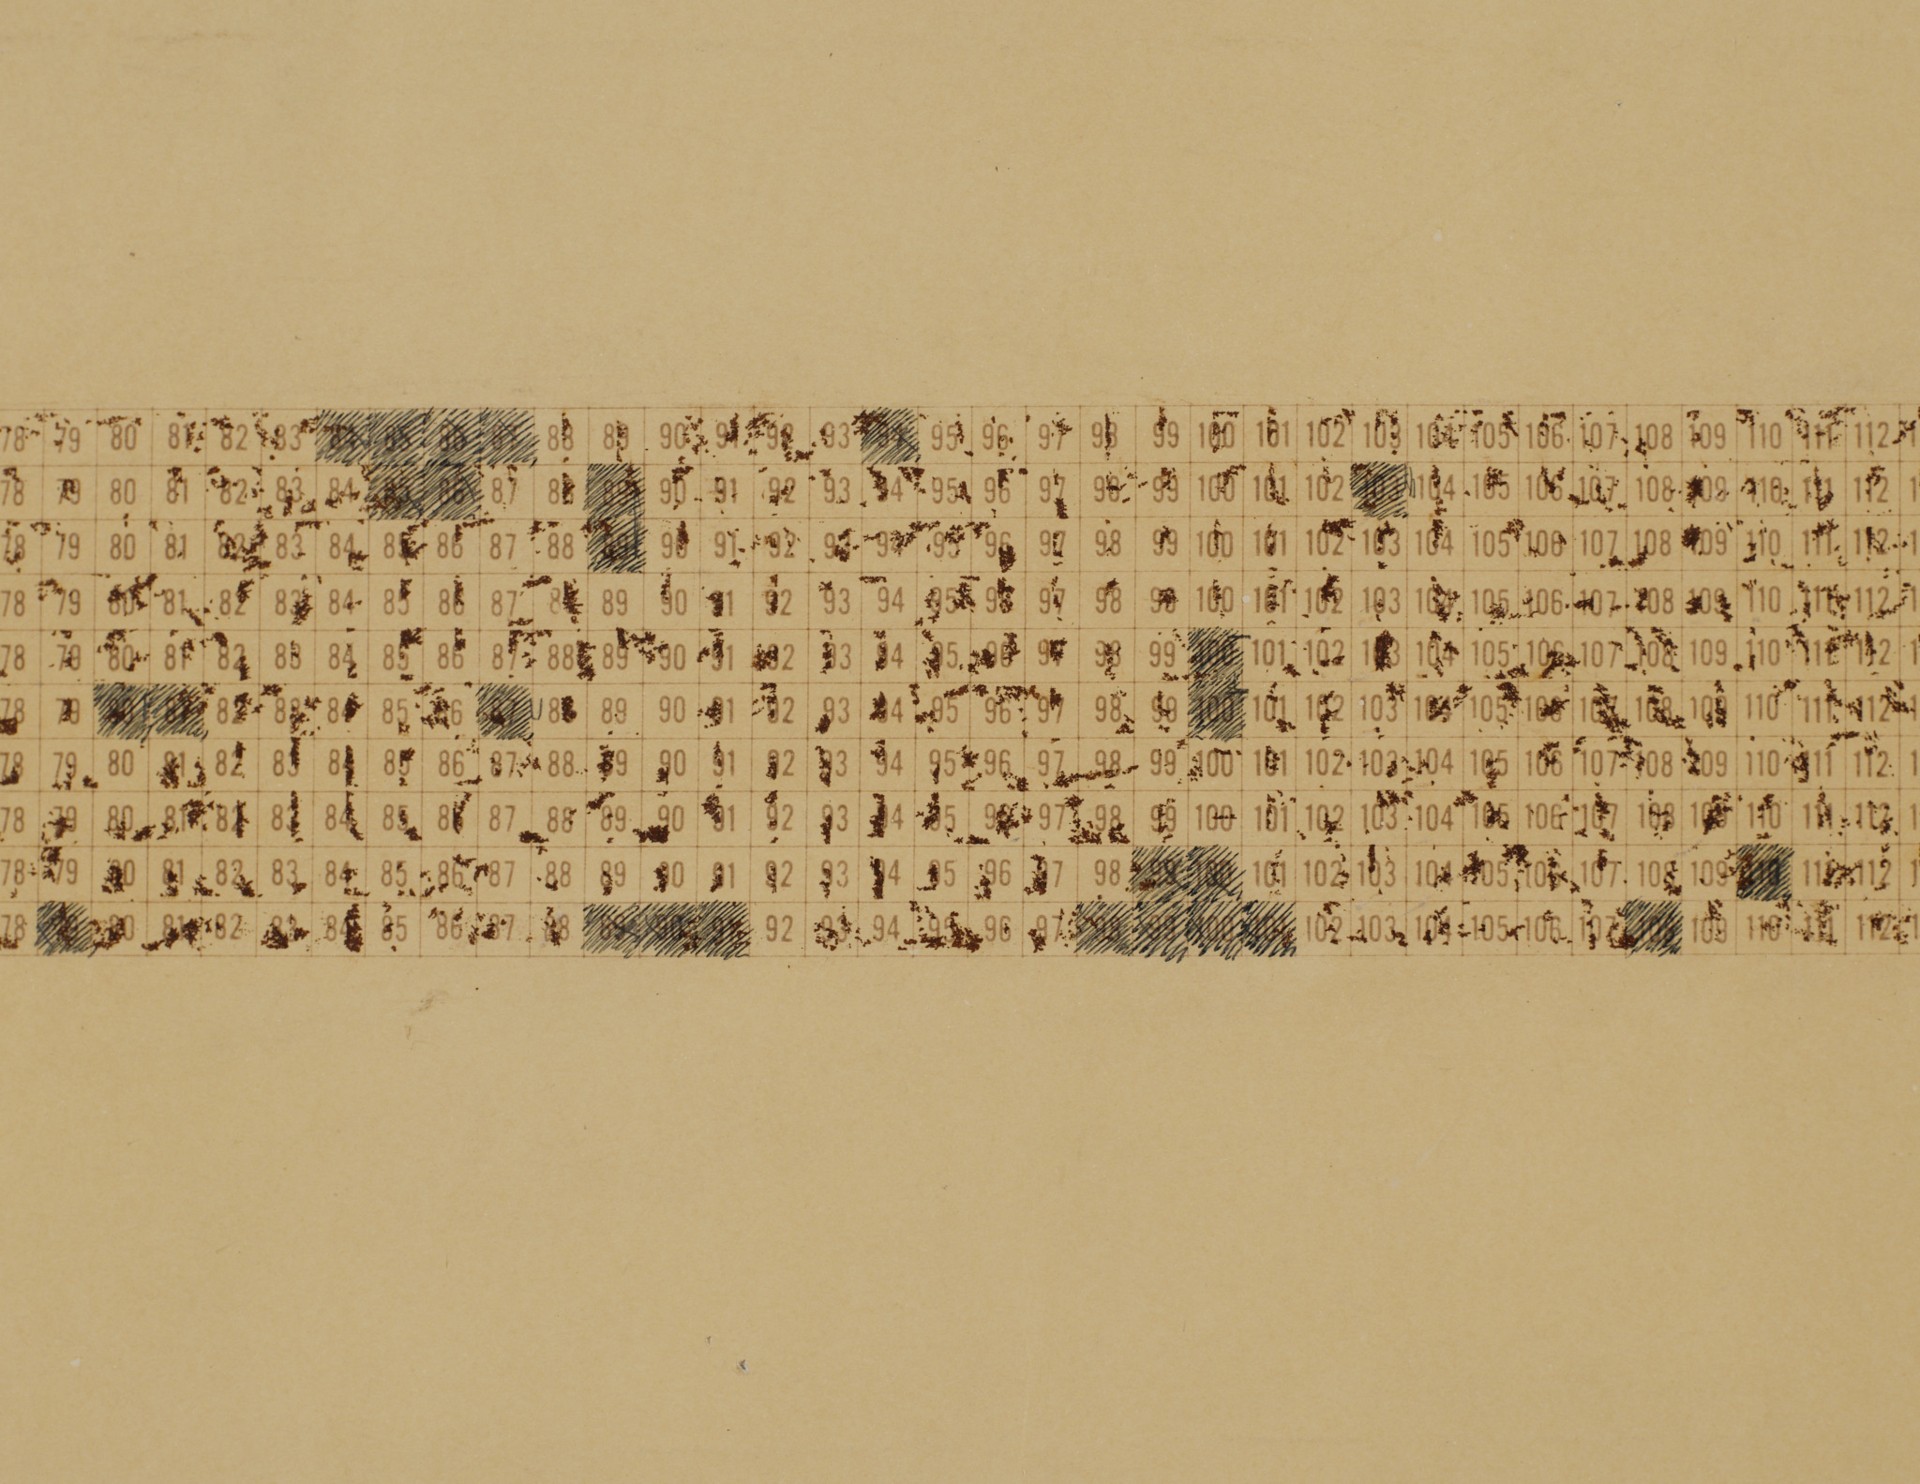 78 79 80 81 82 83 88 89 90 91 92 93 95 96 97 98 99 100 101 102 103 104 105 106 107 108 109 110 111 112
78 79 80 81 82 83 84 87 88 90 91 92 93 94 95 96 97 98 99 100 101 102 104 105 106 107 108 109 110 111 112
78 79 80 81 82 83 84 85 86 87 88 90 91 92 93 94 95 96 97 98 99 100 101 102 103 104 105 106 107 108 109 110 111 112
78 79 80 81 82 83 84 85 86 87 88 89 90 91 92 93 94 95 96 97 98 99 100 101 102 103 104 105 106 107 108 109 110 111 112
78 79 80 81 82 83 84 85 86 87 88 89 90 91 92 93 94 95 96 97 98 99 100 101 102 103 104 105 106 107 108 109 110 111 112
78 79 82 83 84 85 86 88 89 90 91 92 93 94 95 96 97 98 99 100 101 102 103 104 105 106 107 108 109 110 111 112
78 79 80 81 82 83 84 85 86 87 88 89 90 91 92 93 94 95 96 97 98 99 100 101 102 103 104 105 106 107 108 109 110 111 112
78 79 80 81 82 83 84 85 86 87 88 89 90 91 92 93 94 95 96 97 98 99 100 101 102 103 104 105 106 107 108 109 110 111 112
78 79 80 81 82 83 84 85 86 87 88 89 90 91 92 93 94 95 96 97 98 101 102 103 104 105 106 107 108 109 111 112
78 80 81 82 83 84 85 86 87 88 92 93 94 95 96 97 102 103 104 105 106 107 109 110 111 112